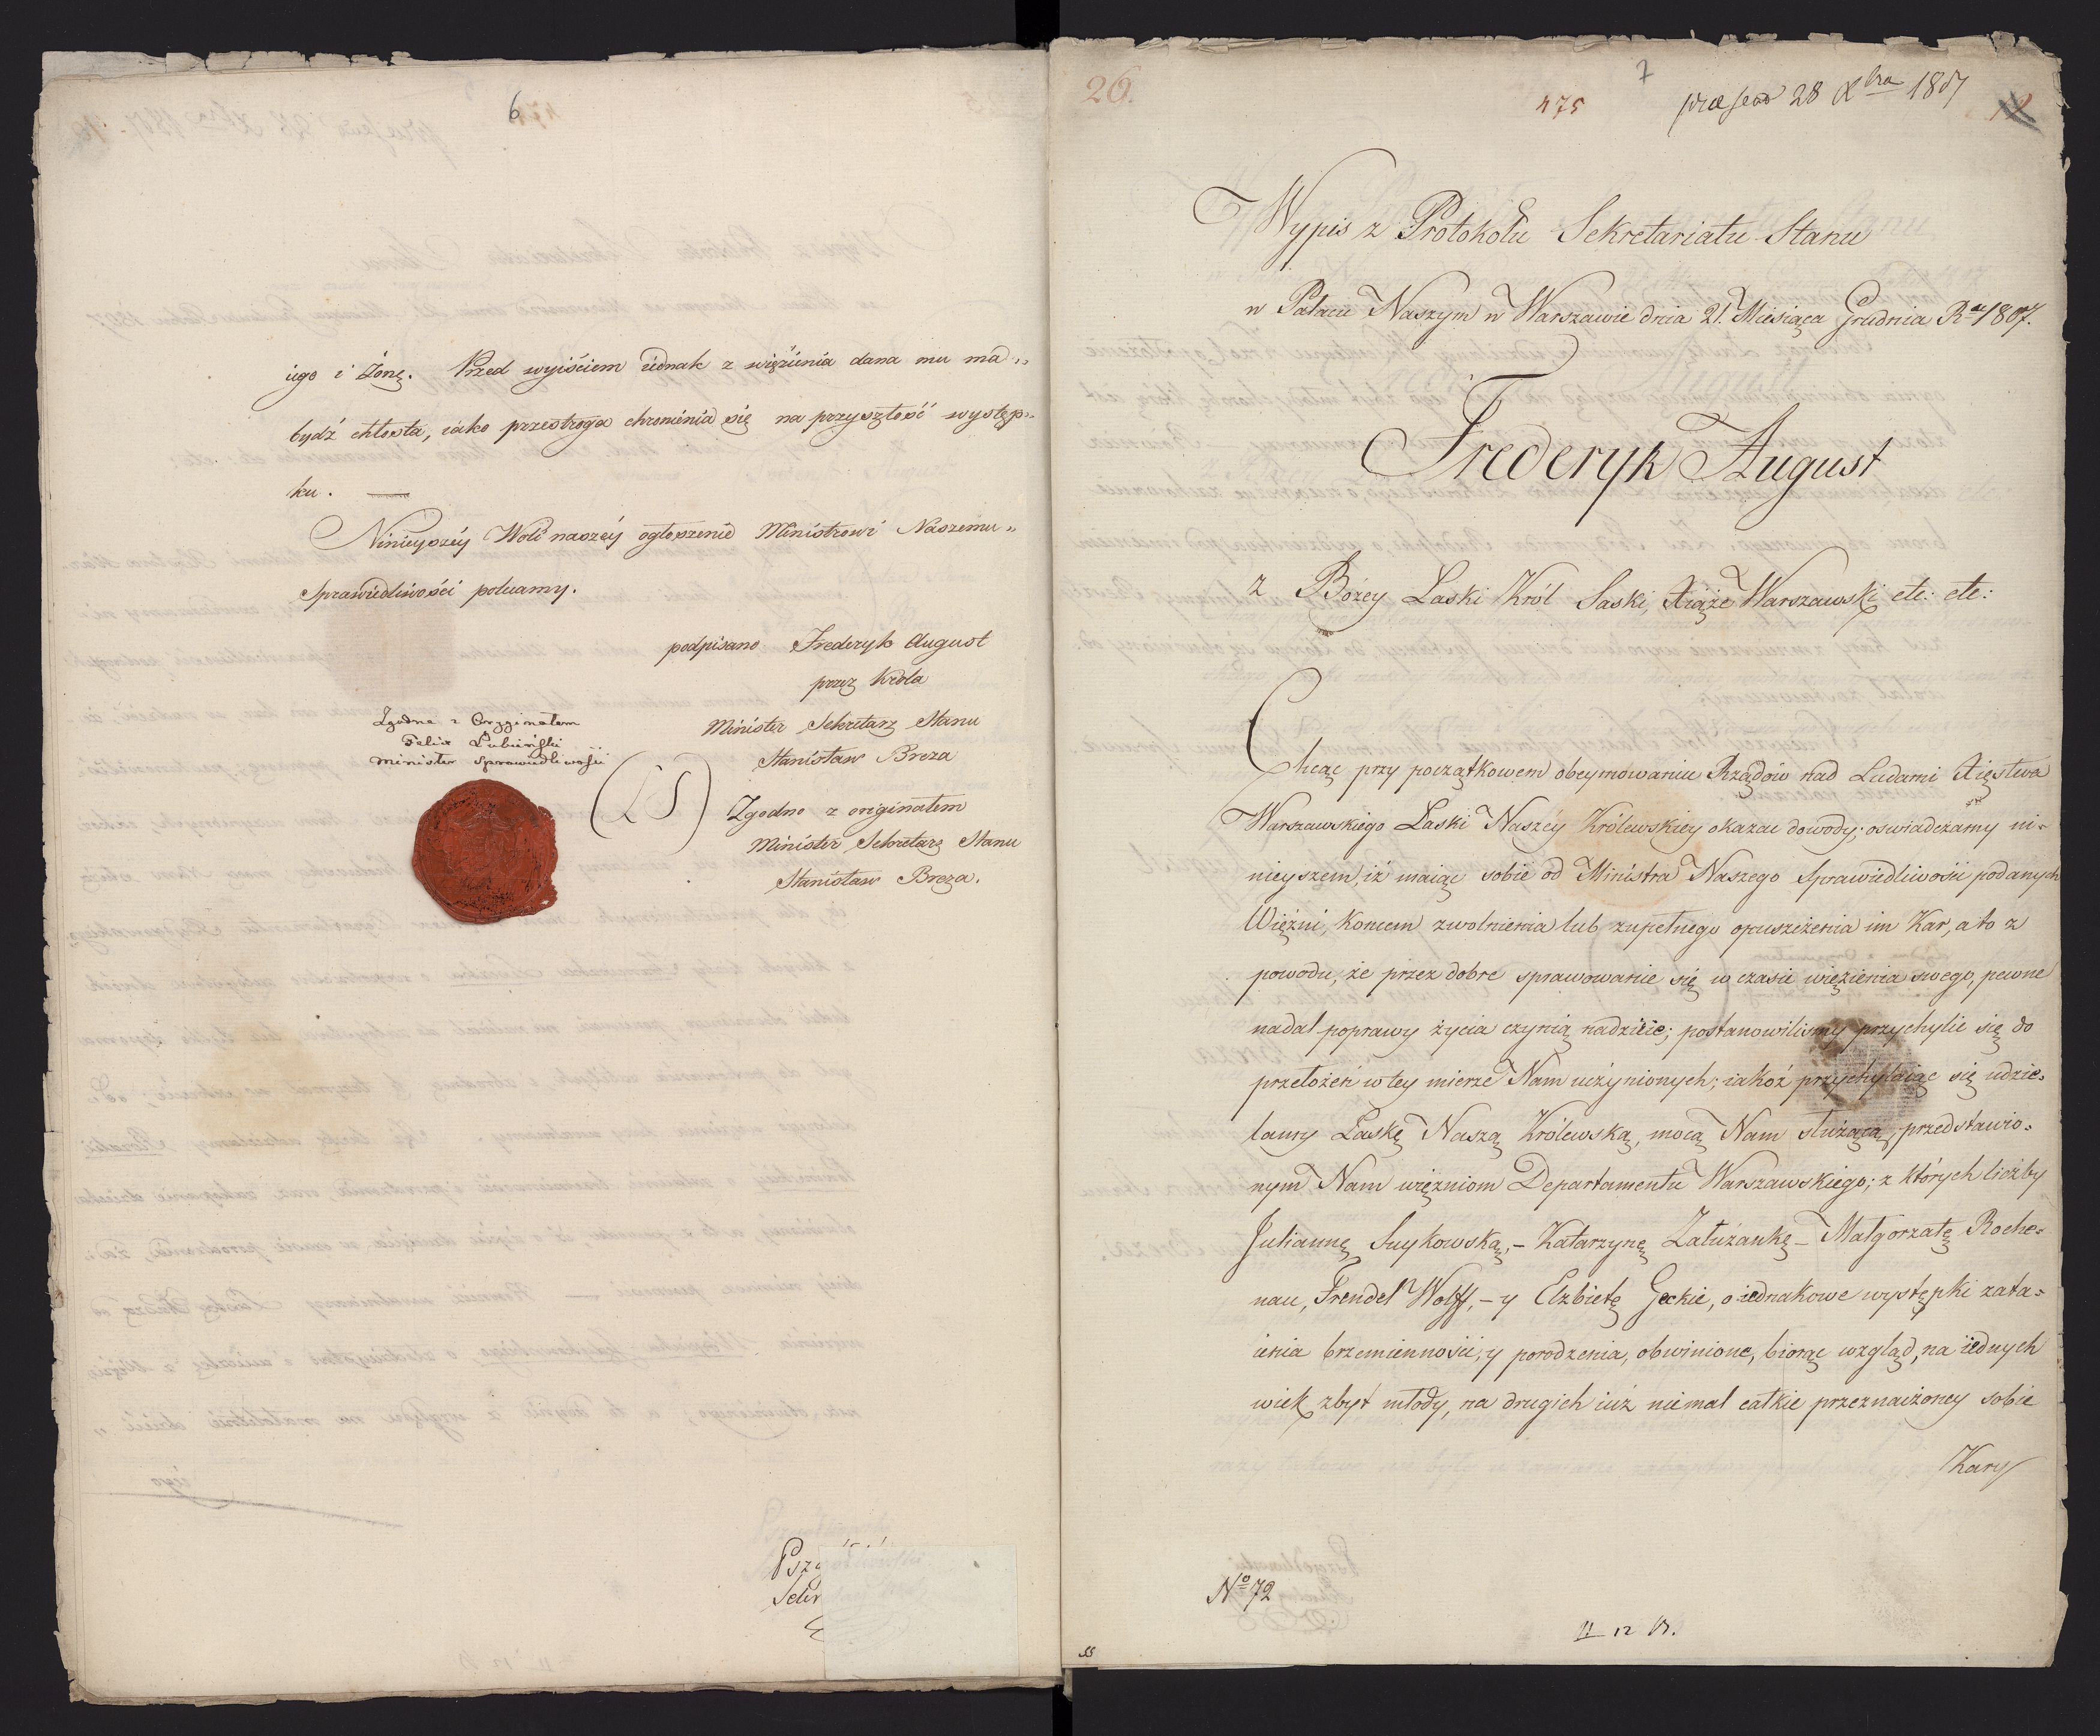 6
iego i Żonę. Przed wyiściem iednak z więzienia dana mu ma„
bydź chłosta, iako przestroga chronienia się na przyszłość występ„
ku.
Ninieyszéy Woli naszéy ogłoszenie Ministrowi Naszemu„
Sprawiedliwości polecamy.
podpisano Frederyk August
przez Króla
Minister Sekretarz Stanu
Stanisław Breza
Zgodno z originałem
Minister Sekretarz Stanu
Stanisław Breza.
(LS)
Zgodne z Oryginałem
Felix Łubieński
Minister Sprawiedliwości
26.
7
475
præsent 28 Xbra 1807
Wypis z Protokołu Sekretariatu Stanu
w Pałacu Naszym w Warszawie dnia 21. Miesiąca Grudnia Ru 1807.
Frederyk August
z Bożey Łaski Król Saski, Xiąże Warszawski etc: etc:
Chcąc przy początkowem obeymowaniu Rządów nad Ludami Xięstwa
Warszawskiego Łaski Naszéy Królewskiey okazac dowody; oswiadczamy ni=
nieyszem, iż maiąc sobie od Ministra Naszego Sprawiedliwosci podanych
Więźni, koncem zwolnienia lub zupełnego opuszczenia im Kar, a to z
powodu, że przez dobre sprawowanie się w czasie więzienia swego, pewne
nadal poprawy życia czynią nadzieie; postanowilismy przychylic się do
przełożeń w tey mierze Nam uczynionych; iakoż przychylaiąc się udzie=
lamy Łaskę Naszą Królewską, mocą Nam służącą, przedstawio=
nym Nam więzniom Departamentu Warszawskiego; z których liczby
Juliannę Suykowską, – Katarzynę Załużankę – Małgorzatę Roche=
nau, Frendel Wolff, – y Elzbietę Geckie, o iednakowe występki zata=
ienia brzemienności, y porodzenia, obwinione, biorąc wzgląd, na iednych
wiek zbyt młody, na drugich iuż niemal całkie przeznaczoney sobie
Kary
No 72
11 12 13.